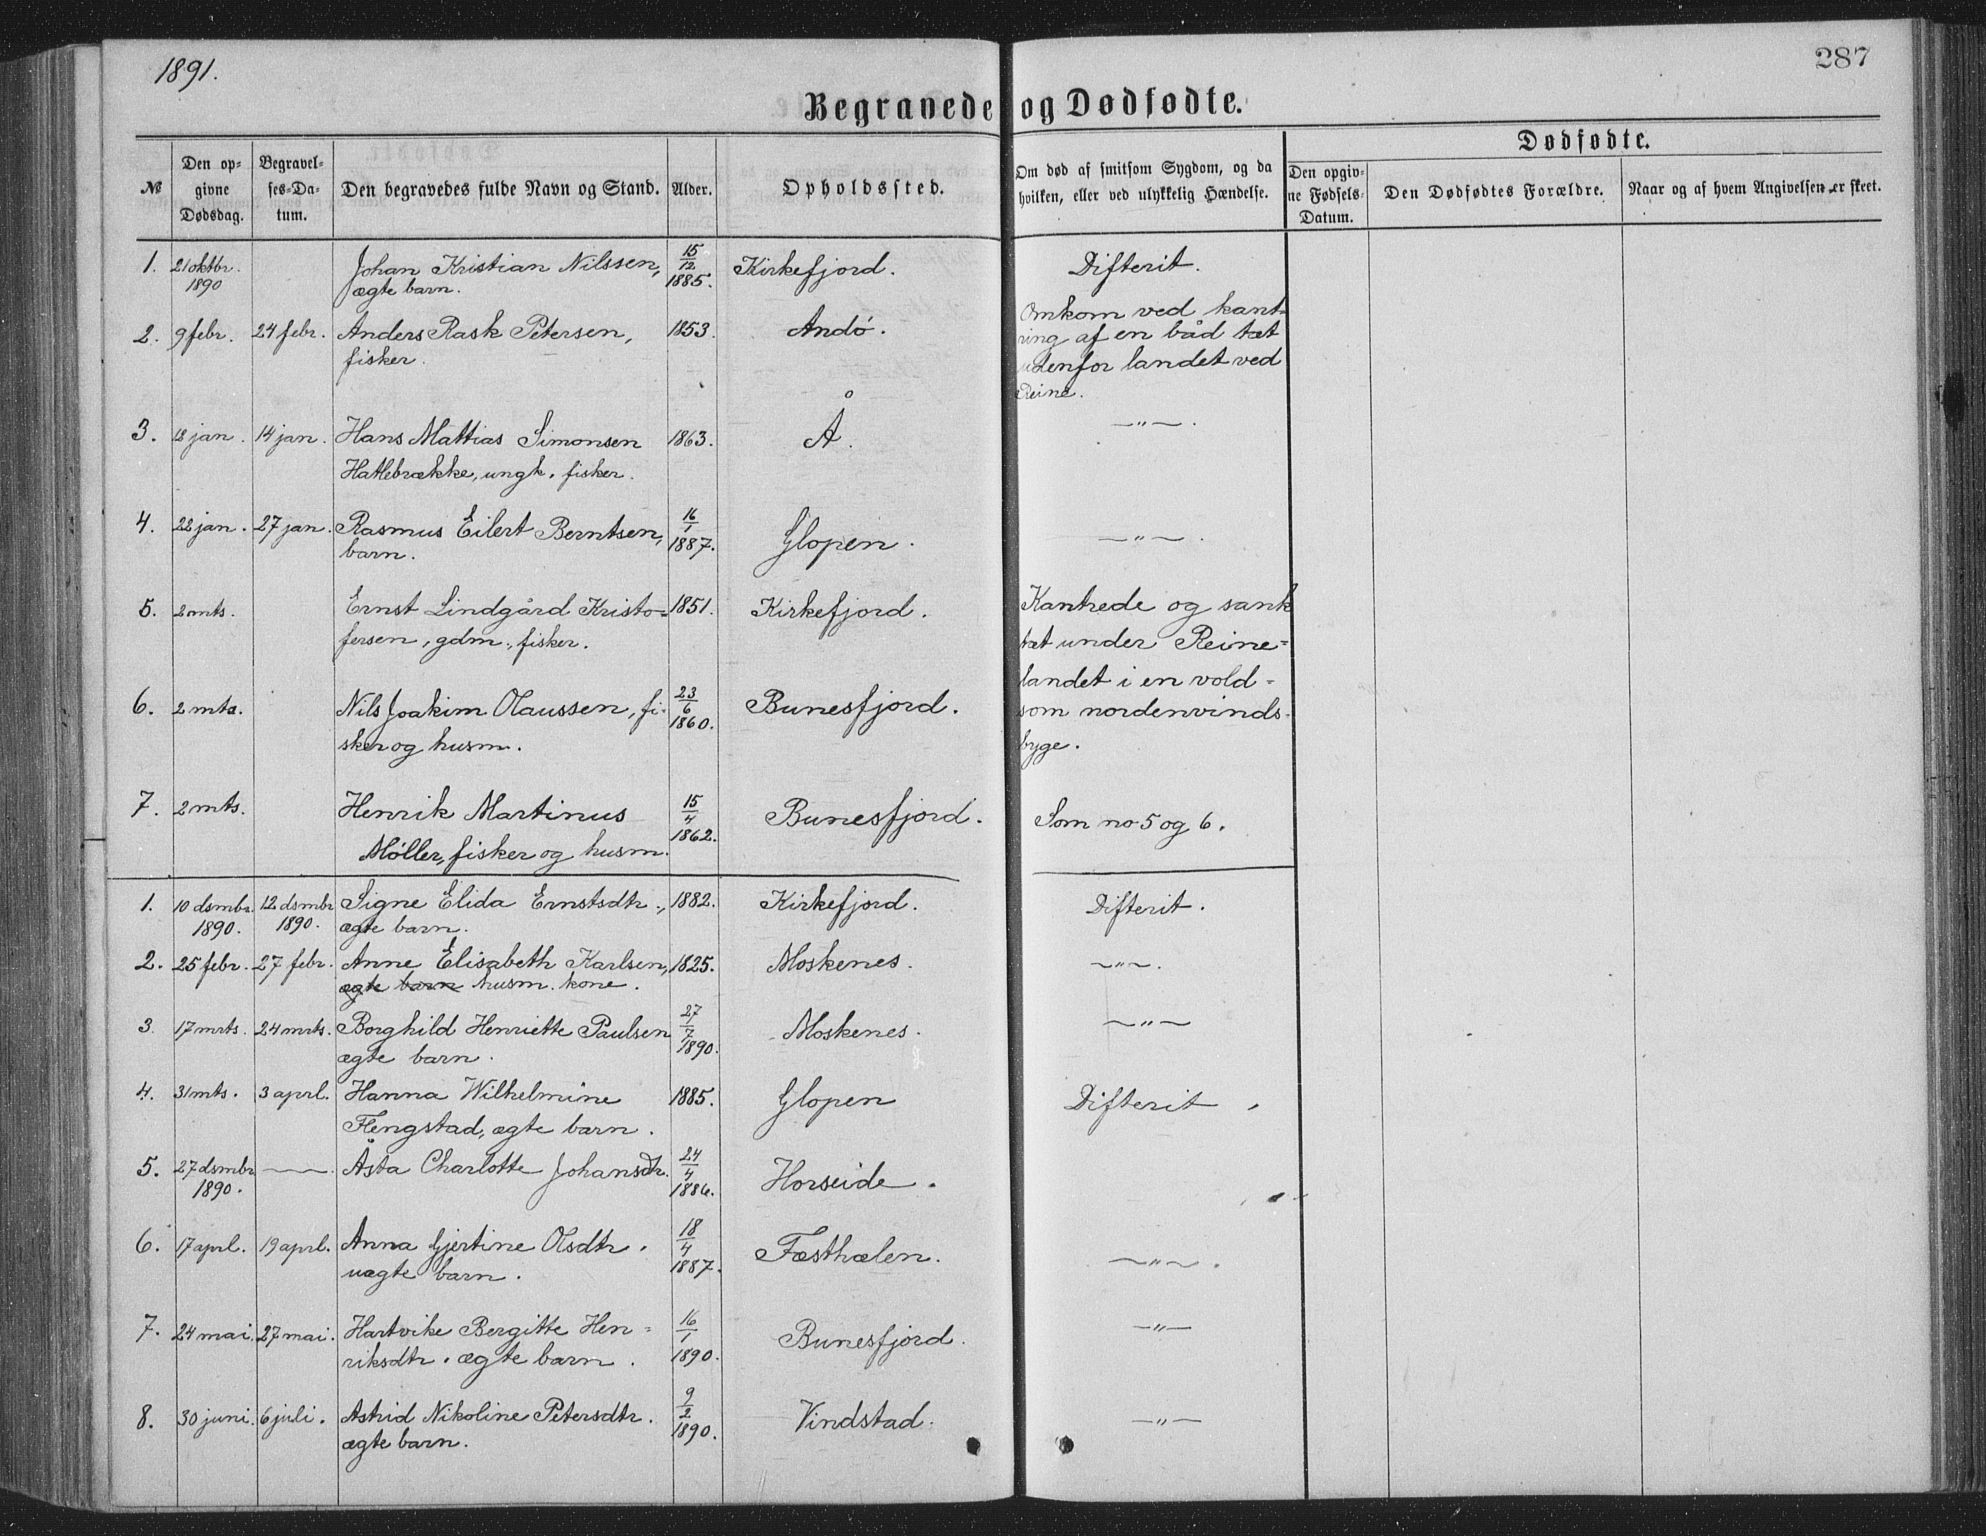 1891.
287
Begravede og Dødfødte.
№ | Den opgivne Dødsdag. | Begravelses-Datum. | Den begravedes fulde Navn og Stand. | Alder. | Opholdssted. | Om død af smitsom Sygdom, og da hvilken, eller ved ulykkelig Hændelse. | Dødfødte. | Den opgivne Fødsels-Datum. | Den Dødfødtes Forældre. | Naar og af hvem Angivelsen er skeet.
1. 21 oktbr. Johan Kristian Nilssen, 15/12 Kirkefjord. Difterit.
1890 ægte barn. 1885.
2. 9 febr. 24 febr. Anders Rask Petersen, 1853. Andø. Omkom ved kant-
fisker. ring af en båd tæt
udenfor landet ved
Reine.
3. 8 jan. 14 jan. Hans Mattias Simonsen 1863. Å. —"—.
Hatlebrække, ungk. fisker.
4. 22 jan. 27 jan. Rasmus Eilert Berntsen, 16/1 Glopen. —"—.
barn. 1887.
5. 2 mts. Ernst Lindgård Kristo- 1851. Kirkefjord. Kantrede og sank
fersen, gdm., fisker. tæt under Reine-
landet i en vold-
6. 2 mts. Nils Joakim Olaussen, fi- 23/6 1860. Bunesfjord. som nordenvinds-
sker og husm. byge.
7. 2 mts. Henrik Martinus 15/4 Bunesfjord. Som no 5 og 6.
Møller, fisker og husm. 1862.
1. 10 dsmbr. 12 dsmbr Signe Elida Ernstsdtr., 1882. Kirkefjord. Difterit.
1890. 1890. ægte barn.
2. 25 febr. 27 febr. Anne Elisabeth Karlsen, 1825. Moskenes. —"—.
ægte barn husm. kone.
3. 17 mrts. 24 mrts. Borghild Henriette Paulsen 27/7 Moskenes. —"—
ægte barn. 1890.
4. 31 mts. 3 aprl. Hanna Wilhelmine 1885. Glopen Difterit.
Flengstad, ægte barn.
5. 27 dsmbr —. Åsta Charlotte Johansdtr. 24/4 Horseide.
1890. 1886.
6. 17 aprl. 19 aprl. Anna Gjertine Olsdtr. 18/4 Fæsthælen. —"—.
uægte barn. 1887.
7. 24 mai. 27 mai. Hartvike Bergitte Hen- 16/1 Bunesfjord. —"—
riksdtr. ægte barn. 1890.
8. 30 juni. 6 juli. Astrid Nikoline Petersdtr. 9/2 Vindstad. —"—
ægte barn. 1890.